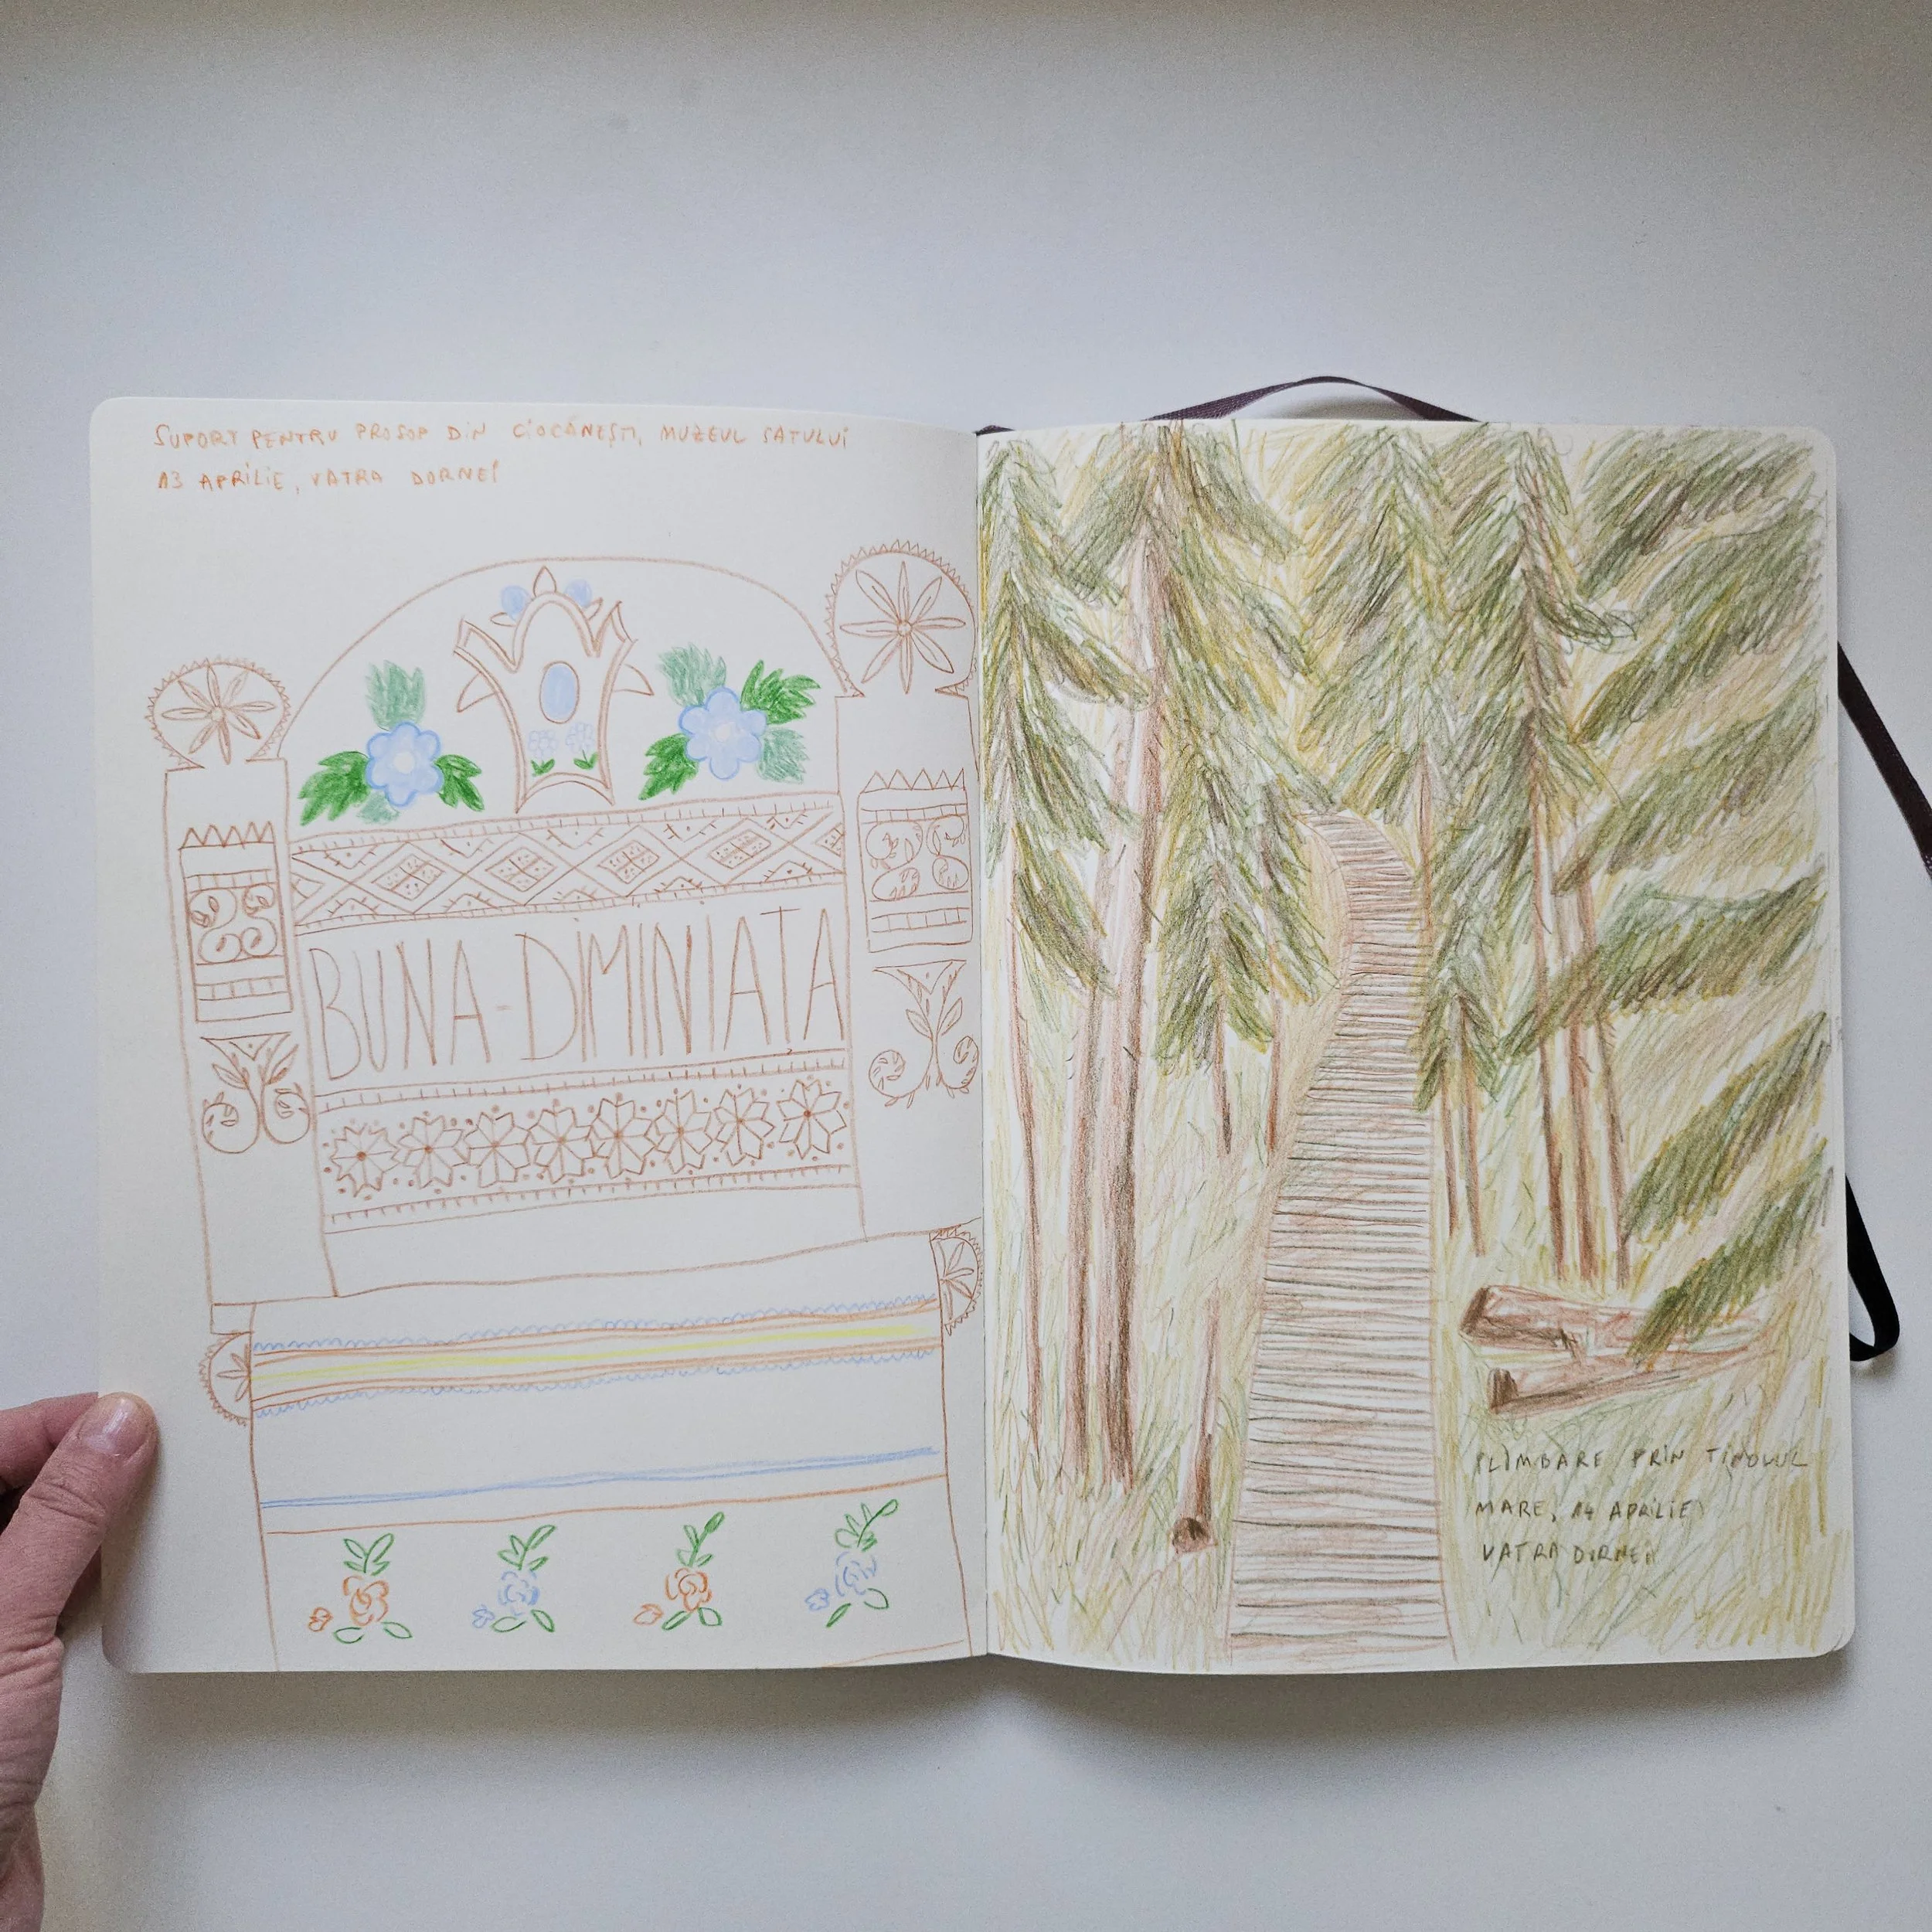 SUPORT PENTRU PROSOP DIN CIOCĂNEȘTI, MUZEUL SATULUI
13 APRILIE, VATRA DORNEI
BUNA-DIMINIATA
PLIMBARE PRIN TINOVUL
MARE, 14 APRILIE
VATRA DORNEI